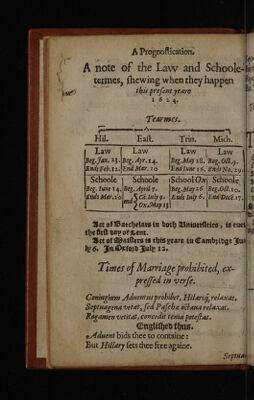 A Prognostication.
A note of the Law and Schoole-
termes, shewing when they happen
this present yeare
1624.
Tearmes.
Hil. East. Trin. Mich.
Law Law Law Law
Beg. Jan. 23. Beg. Apr. 14. Beg. May 28. Beg. Oct. 9.
Ends Feb. 12. End May. 10 End Iune 16. Ends No. 29.
Schoole Schoole School Ox: Schoole
Beg. Iune 14. Beg. April 7. Beg. May 26 Beg. Oct. 10.
Ends Mar. 20 end Ca. Iuly 9. Ends Iuly 6. End Dece. 17.
Ox. May 13
Act of Batchelars in both Universities, is ever
the first day of Lent.
Act of Masters is this yeare in Cambridge Iu-
ly 6. In Oxford Iuly 12.
Times of Marriage prohibited, ex-
pressed in verse.
Coniugium Adventus prohibet, Hilariq; relaxat.
Septuagena vetat, sed Paschæ octava relaxat.
Rogamen vetitat, concedit trina potestas.
Englished thus.
Advent bids thee to containe:
But Hillary sets thee free againe.
Septua-